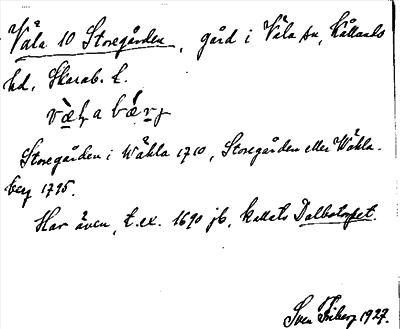 Våla 10 Storegården, gård i Våla sn, Kållands
hd, Skarab. l.
Storegården i Wåhla 1710, Storegården eller Wåhla-
berg 1795.
Har även, t.ex. 1690 jb, kallats Dalbotorpet.
Sven Friberg 1927.